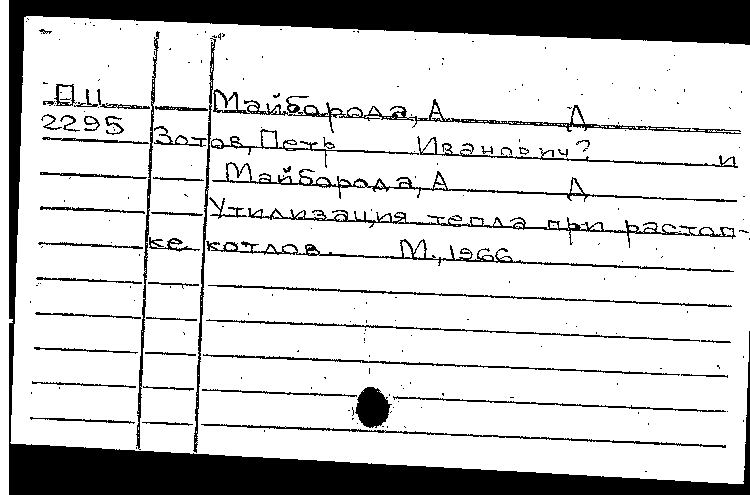 П11 Майборода, А Д
2295 Зотов, Петр Иванович? и
Майборода, А Д
Утилизация тепла при растоп-
ке котлов. М., 1966